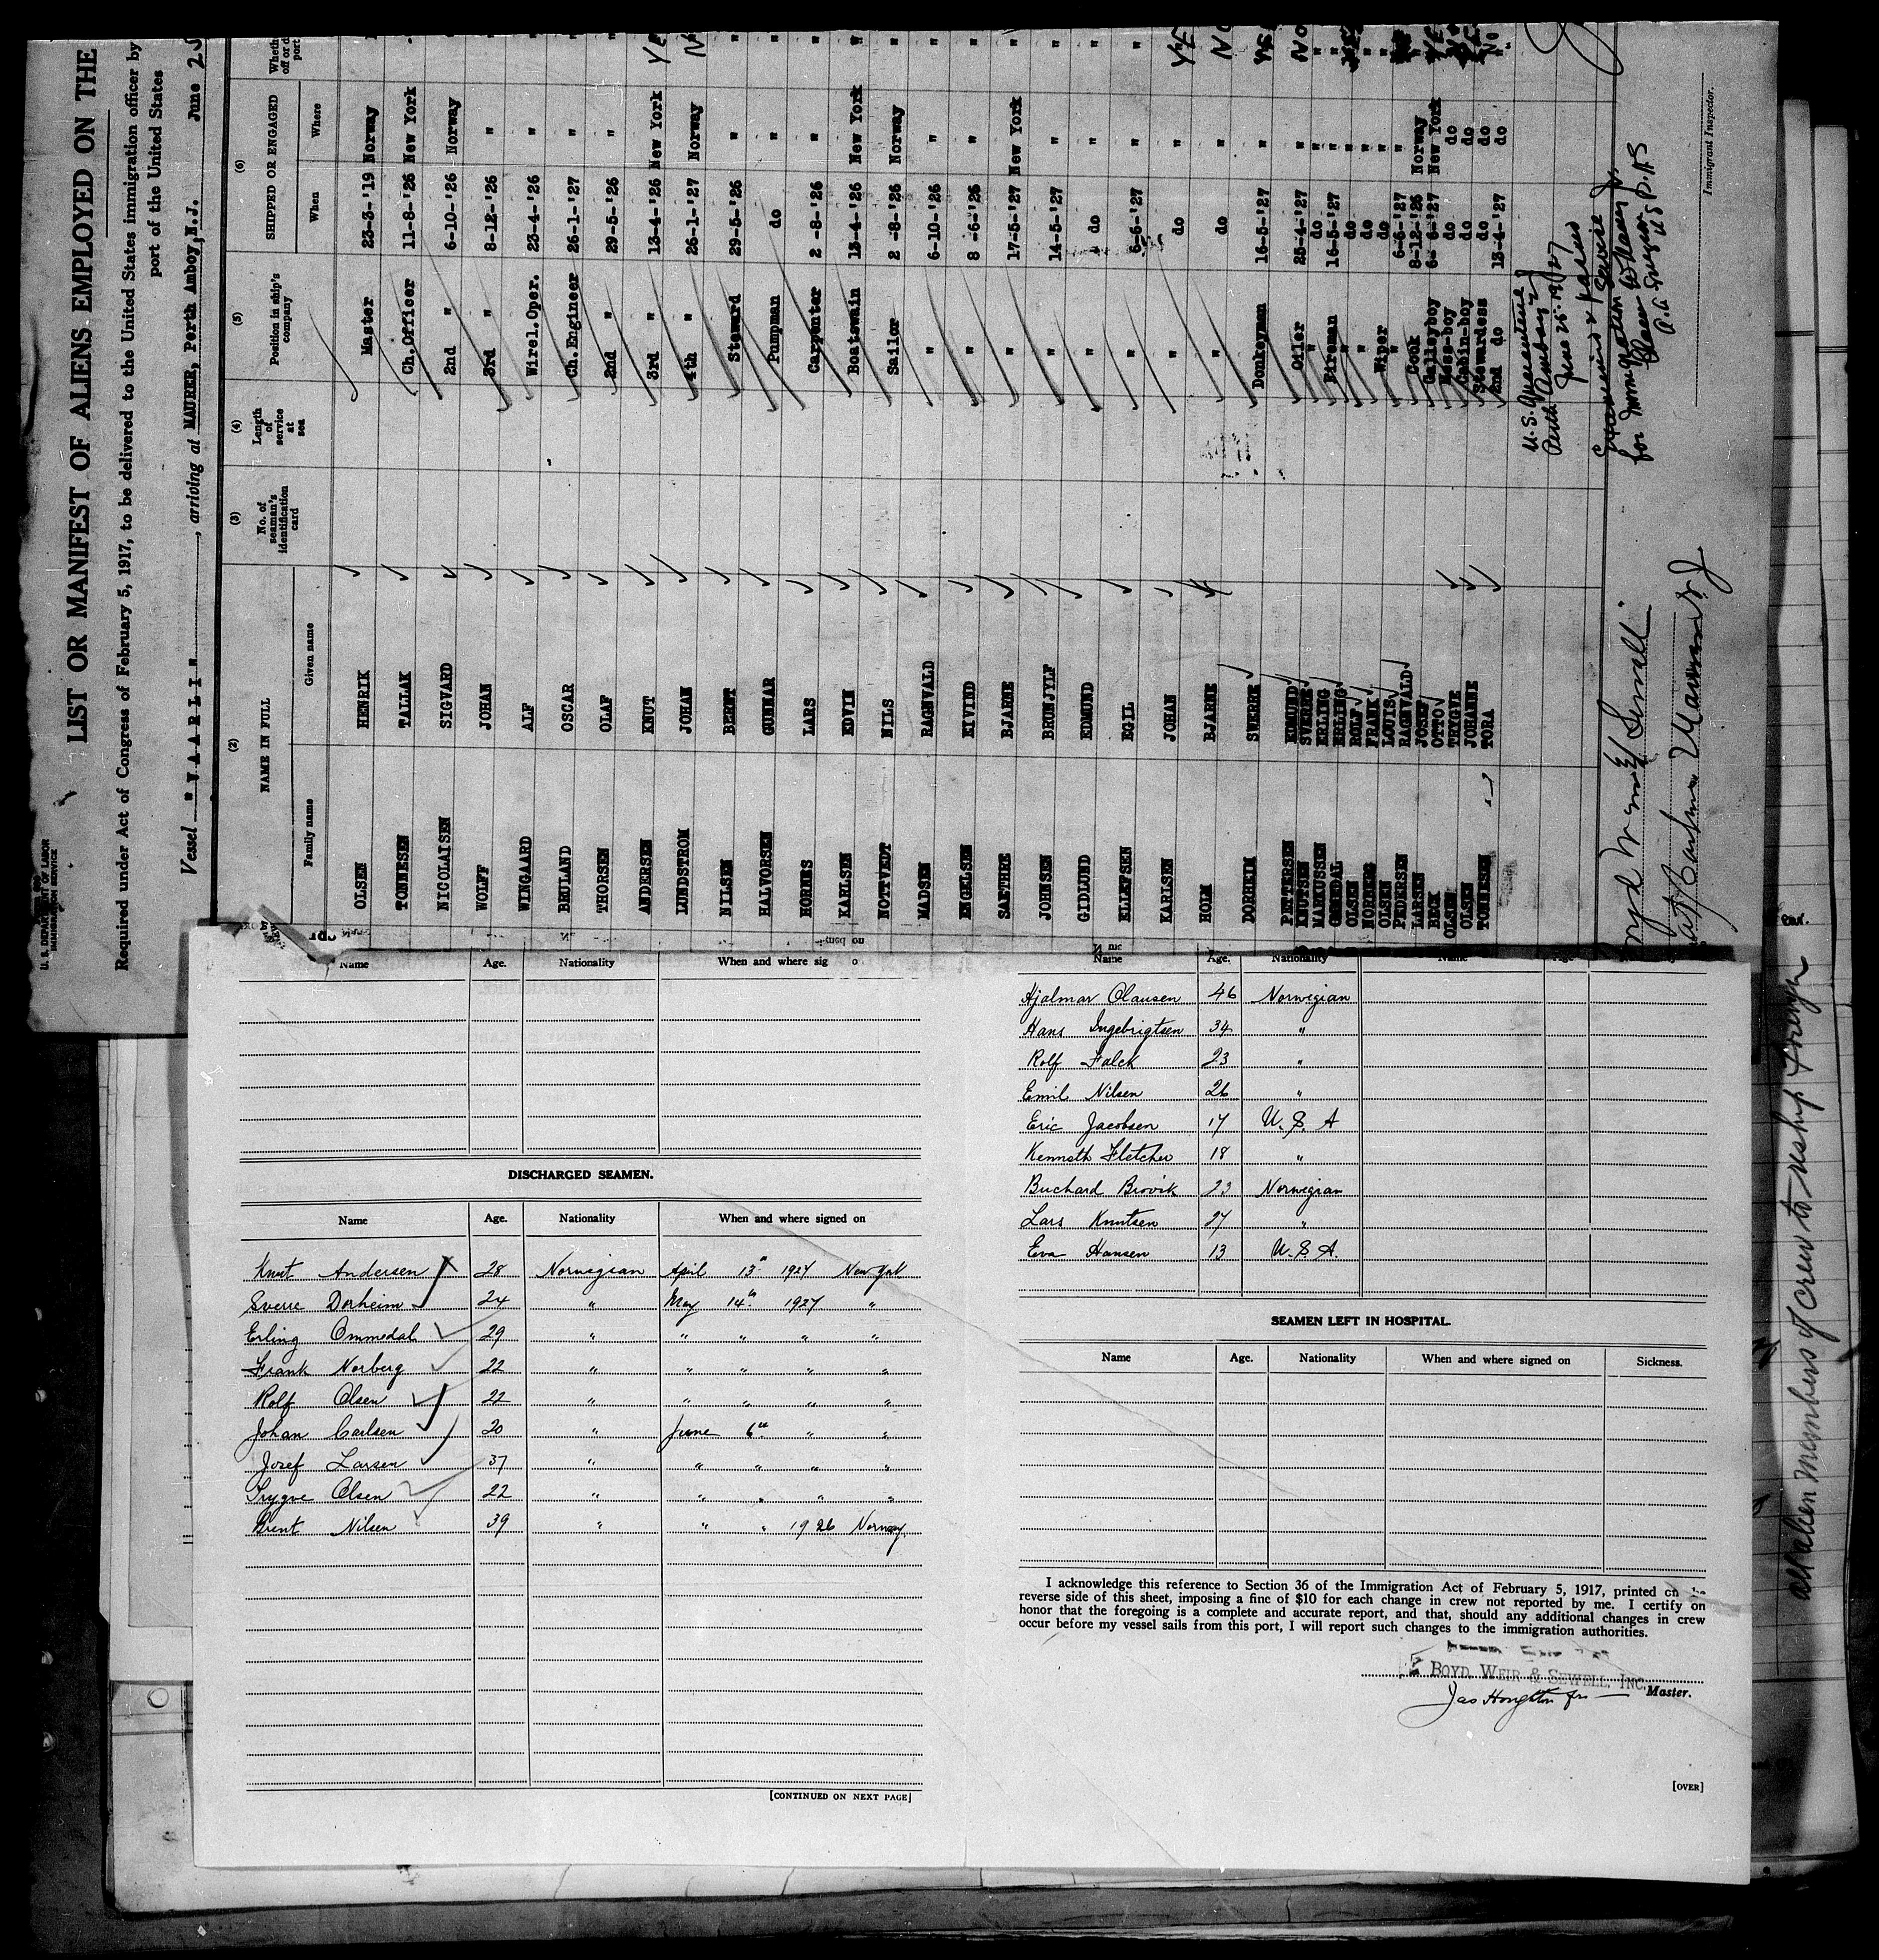 U. S. DEPARTMENT OF LABOR
IMMIGRATION SERVICE
LIST OR MANIFEST OF ALIENS EMPLOYED ON THE
Required under Act of Congress of February 5, 1917, to be delivered to the United States immigration officer by
port of the United States
Vessel "VAARLI", arriving at MAURER, Perth Amboy, N.J. June
(2) (3) (4) (5) (6)
NAME IN FULL No. of seaman's identification card Length of service at sea Position in ship's company SHIPPED OR ENGAGED
Family name Given name When Where
OLSEN HENRIK Master 23-3-'19 Norway
TONNESEN TALLAK Ch. Officer 11-8-'26 New York
NICOLAISEN SIGVARD 2nd " 6-10-'26 Norway
WOLFF JOHAN 3rd " 8-12-'26 "
WINGAARD ALF Wirel. Oper. 23-4-'26 "
BEULAND OSCAR Ch. Engineer 26-1-'27 "
THORSEN OLAF 2nd " 29-5-'26 "
ANDERSEN KNUT 3rd " 13-4-'26 New York
LUNDSTROM JOHAN 4th " 26-1-'27 Norway
NILSEN BERNT Steward 29-5-'26 "
HALVORSEN GUNNAR Pumpman do "
HORNES LARS Carpenter 2-8-'26 "
KARLSEN EDVIN Boatswain 13-4-'26 New York
NOTTVEDT NILS Sailor 2-8-'26 Norway
MADSEN RAGNVALD " 6-10-'26 "
ENGELSEN EIVIND " 8-6-'26 "
SAETHRE BJARNE " 17-5-'27 New York
JOHNSEN BRUNJYLF " 14-5-'27 "
GIDLUND EDMUND " do "
ELLEFSEN EGIL " 6-6-'27 "
KARLSEN JOHAN " do "
HOLM BJARNE " do "
DORHEIM SWERRE Donkeyman 16-5-'27 "
PETTERSEN EDMUND Oiler 25-4-'27 "
KNUTSEN SVERRE " do "
MARKUSSEN ERLING Fireman 16-5-'27 "
OMMEDAL ERLING " do "
OLSEN ROLF " do "
NORBERG FRANK " do "
OLSEN LOUIS Wiper do "
PEDERSEN RAGNVALD " 6-6-'27 "
LARSEN JOSEF Cook 8-12-'26 Norway
BECK OTTO Galleyboy 6-6-'27 New York
OLSEN TRYGVE Mess-boy do do
OLSEN JOHANNE Stewardess do do
TONNESEN TORA 2nd do 13-4-'27 do
U.S. Quarantine
Perth Amboy N.J.
June 25-1927
Immigrant Inspector.
all alien members of crew to reship foreign
Name Age. Nationality
DISCHARGED SEAMEN.
Name Age. Nationality When and where signed on
Knut Andersen 28 Norwegian April 13th 1927 New York
Sverre Dorheim 24 " May 14th 1927 "
Erling Ommedal 29 " " " " "
Frank Norberg 22 " " " " "
Rolf Olsen 22 " " " " "
Johan Carlsen 20 " June 6th " "
Josef Larsen 37 " " " " "
Trygve Olsen 22 " " " " "
Brent Nilsen 39 " " " 1926 Norway
[CONTINUED ON NEXT PAGE]
Name Age. Nationality Name Age
Hjalmar Olausen 46 Norwegian
Hans Ingebrigtsen 34 "
Rolf Falck 23 "
Emil Nilsen 26 "
Eric Jacobsen 17 U. S. A
Kenneth Fletcher 18 "
Buchard Brovik 23 Norwegian
Lars Knutsen 27 "
Eva Hansen 13 U.S.A.
SEAMEN LEFT IN HOSPITAL.
Name Age. Nationality When and where signed on Sickness.
I acknowledge this reference to Section 36 of the Immigration Act of February 5, 1917, printed on
reverse side of this sheet, imposing a fine of $10 for each change in crew not reported by me. I certify on
honor that the foregoing is a complete and accurate report, and that, should any additional changes in crew
occur before my vessel sails from this port, I will report such changes to the immigration authorities.
BOYD, WEIR & SEWELL, INC.
Jas Houghton Jr Master.
[OVER]